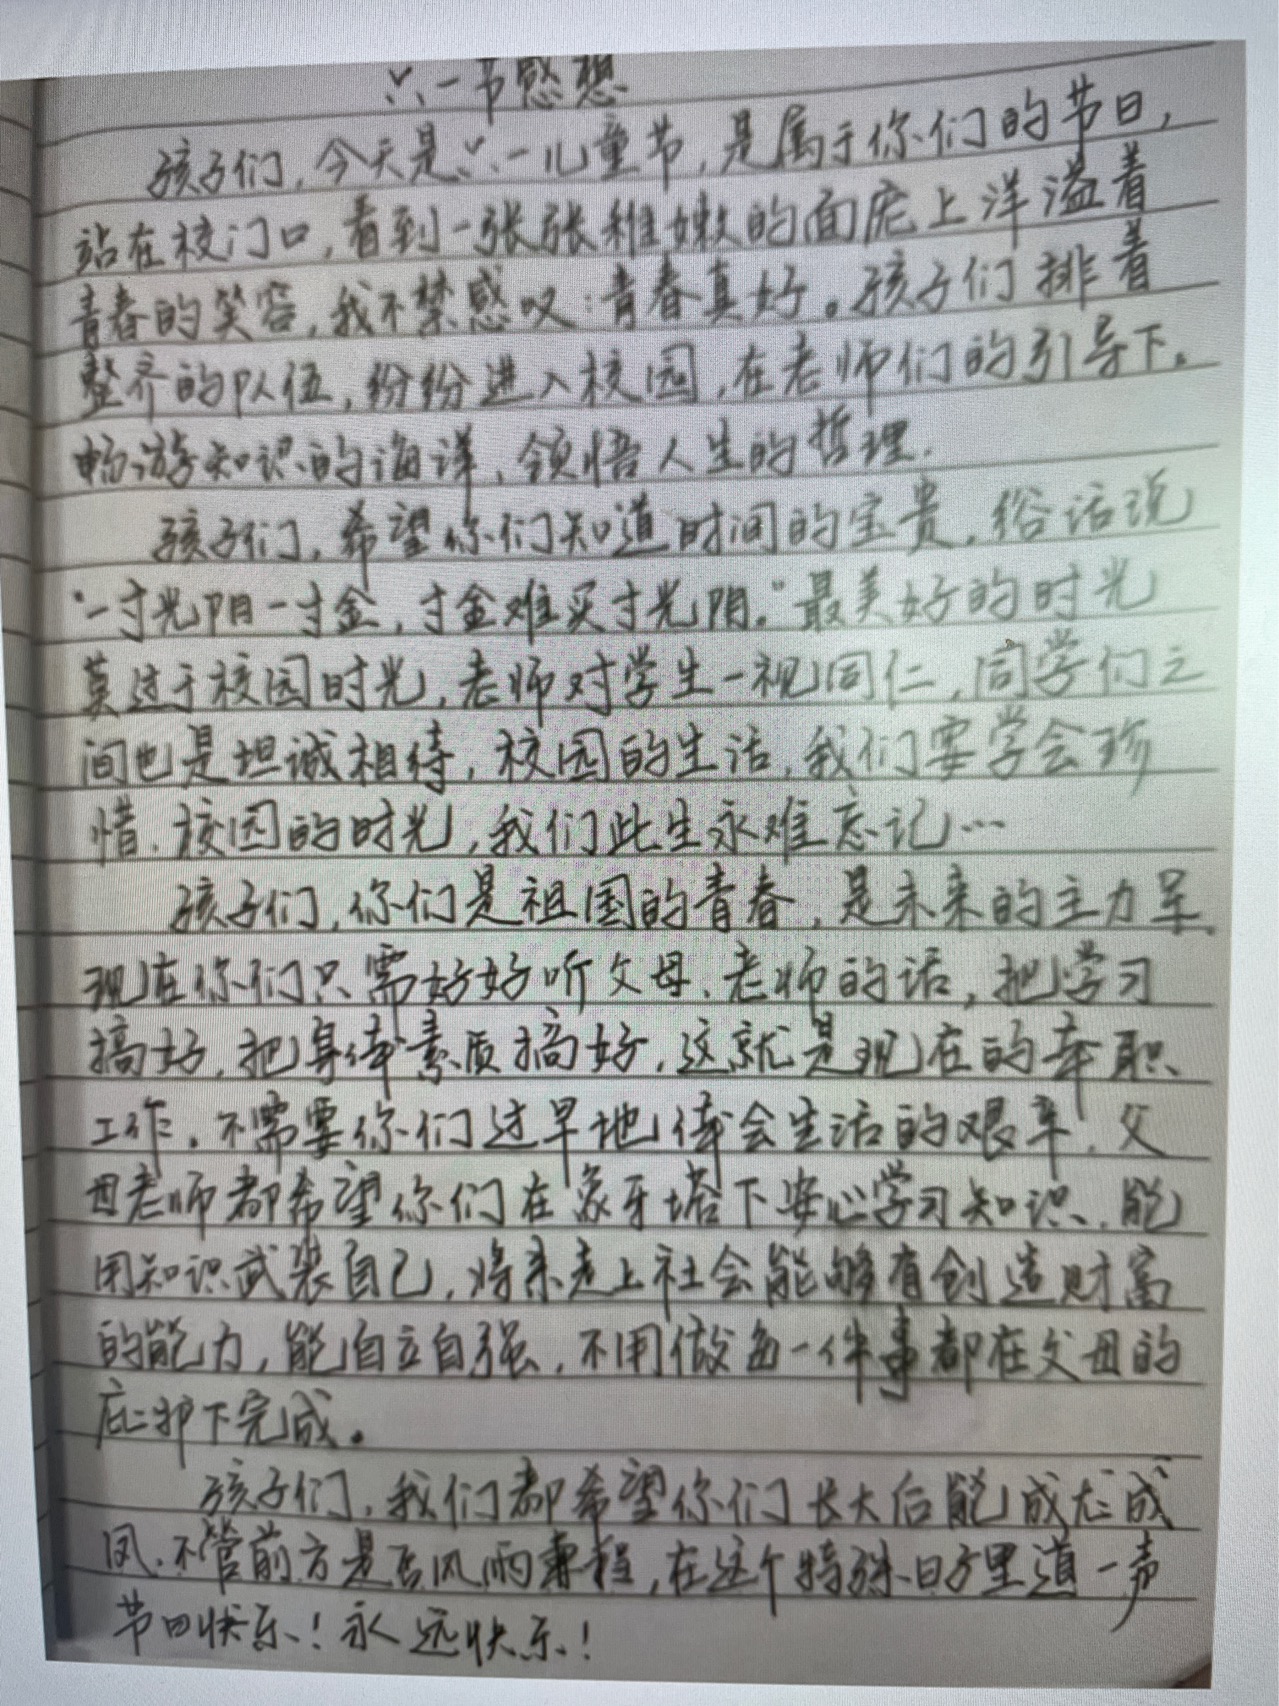 六一节感想
孩子们，今天是六一儿童节，是属于你们的节日，
站在校门口，看到一张张稚嫩的面庞上洋溢着
青春的笑容，我不禁感叹：青春真好。孩子们排着
整齐的队伍，纷纷进入校园，在老师们的引导下。
畅游知识的海洋，领悟人生的哲理.
孩子们，希望你们知道时间的宝贵，俗话说
“一寸光阴一寸金，寸金难买寸光阴。”最美好的时光
莫过于校园时光，老师对学生一视同仁，同学们之
间也是坦诚相待，校园的生活，我们要学会珍
惜、校园的时光，我们此生永难忘记…
孩子们，你们是祖国的青春，是未来的主力军。
现在你们只需好好听父母、老师的话，把学习
搞好，把身体素质搞好，这就是现在的本职
工作，不需要你们过早地体会生活的艰辛，父
母老师都希望你们在象牙塔下安心学习知识，能
用知识武装自己，将来走上社会能够有创造财富
的能力，能自立自强，不用做每一件事都在父母的
庇护下完成。
孩子们，我们都希望你们长大后能成龙成
凤，不管前方是否风雨兼程，在这个特殊日子里道一声
节日快乐！永远快乐！